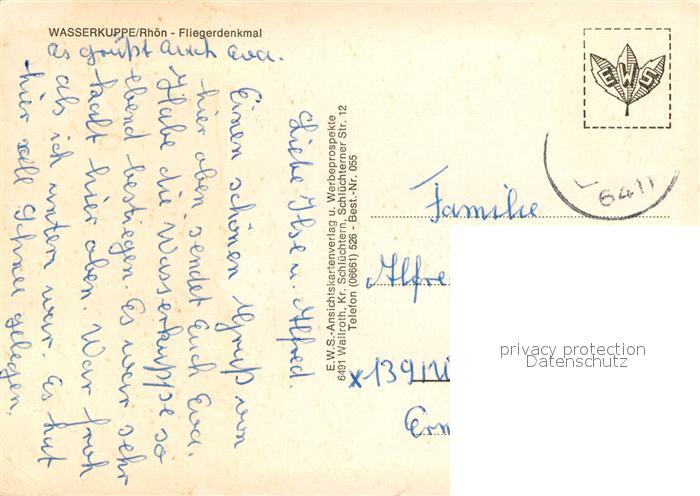 WASSERKUPPE/Rhön - Fliegerdenkmal
es grüßt Euch Eva.
Liebe Ilse u. Alfred.
Einen schönen Gruß von
hier oben sendet Euch Eva.
Habe die Wasserkuppe so
ebend bestiegen Es war sehr
kalt hier oben. War froh
als ich unten war. Es hat
hier voll Schnee gelegen.
E.W.S.-Ansichtskartenverlag u. Werbeprospekte
6491 Wallroth, Kr. Schlüchtern, Schlüchterner Str. 12
Telefon (06661) 526 - Best.-Nr. 055
EWS
6411
Familie
Alfre
x 139
Erm
privacy protection
Datenschutz